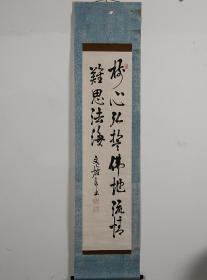 樹心弘誓佛地流情
難思法海